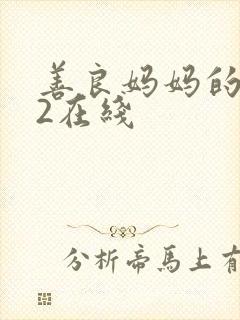 善良妈妈的
2在綫
分析帝馬上有